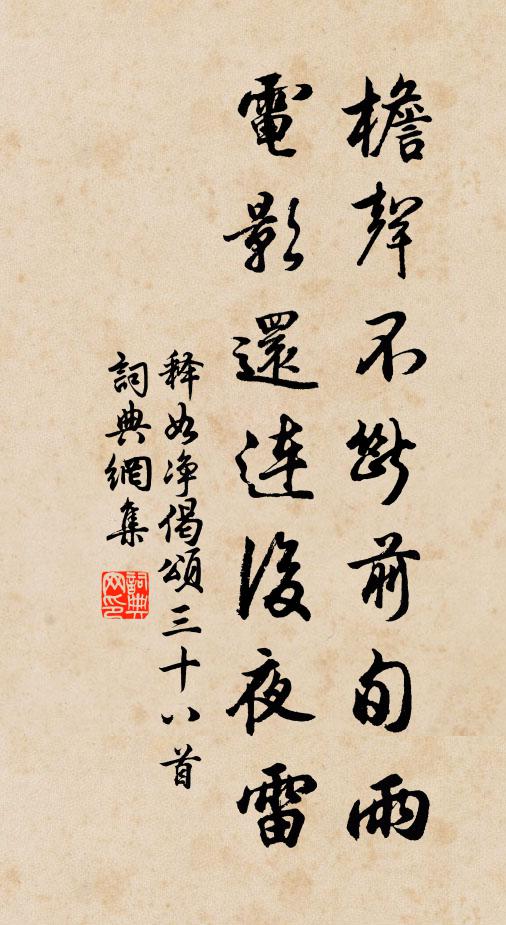 檐聲不斷前旬雨
電影還連後夜雷
释如净偈頌三十八首
詞典網集
詞典网印